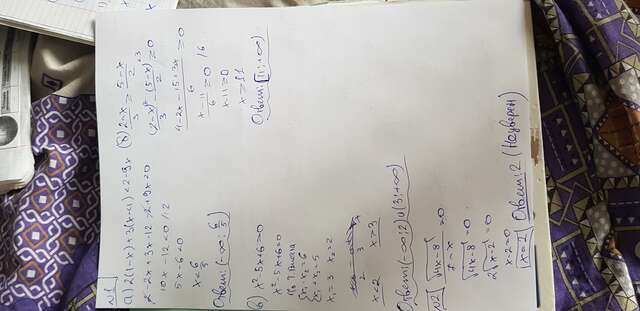 №1
а) 2(1-x)+3(x-4)<2-9x
2-2x+3x-12-2+9x<0
10x-12<0 /:2
5x-6<0
x=6/5
Ответ: (-∞; 6/5)
б) x²-5x+6=0
x²-5x+6=0
По т. Виета
x₁·x₂=6
x₁+x₂=5
x₁=3 x₂=2
2 3
x<2 x=3
Ответ: (-∞;2)∪(3;+∞)
№2 √4x-8 =0
2-x
√4x-8=0
2√x-2=0
x-2=0
x=2 Ответ: 2 (Неуверен)
в) 2-x/3 ≥ 5-x/2
2-x/3 - (5-x)/2 ≥0
4-2x-15+3x/6 ≥0
x-11/6 ≥0 /6
x-11≥0
x≥11
Ответ: [11;+∞)